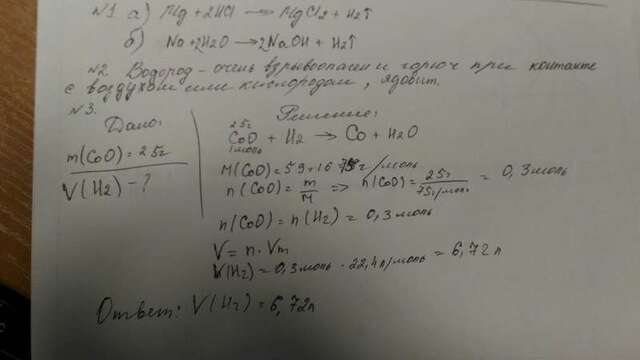 №1 а) Mg + 2HCl → MgCl2 + H2↑
б) Na + 2H2O → 2NaOH + H2↑
№2 Водород – очень взрывоопасен и горюч при контакте
с воздухом или кислородом, ядовит.
№3.
Дано:
m(CoO) = 25г
V(H2) – ?
Решение:
25г
CoO + H2 → Co + H2O
1моль
M(CoO) = 59+16 75г/моль
n(CoO) = m/M => n(CoO) = 25г/75г/моль = 0,3моль
n(CoO) = n(H2) = 0,3моль
V = n · Vm
V(H2) = 0,3моль · 22,4л/моль = 6,72л
Ответ: V(H2) = 6,72л